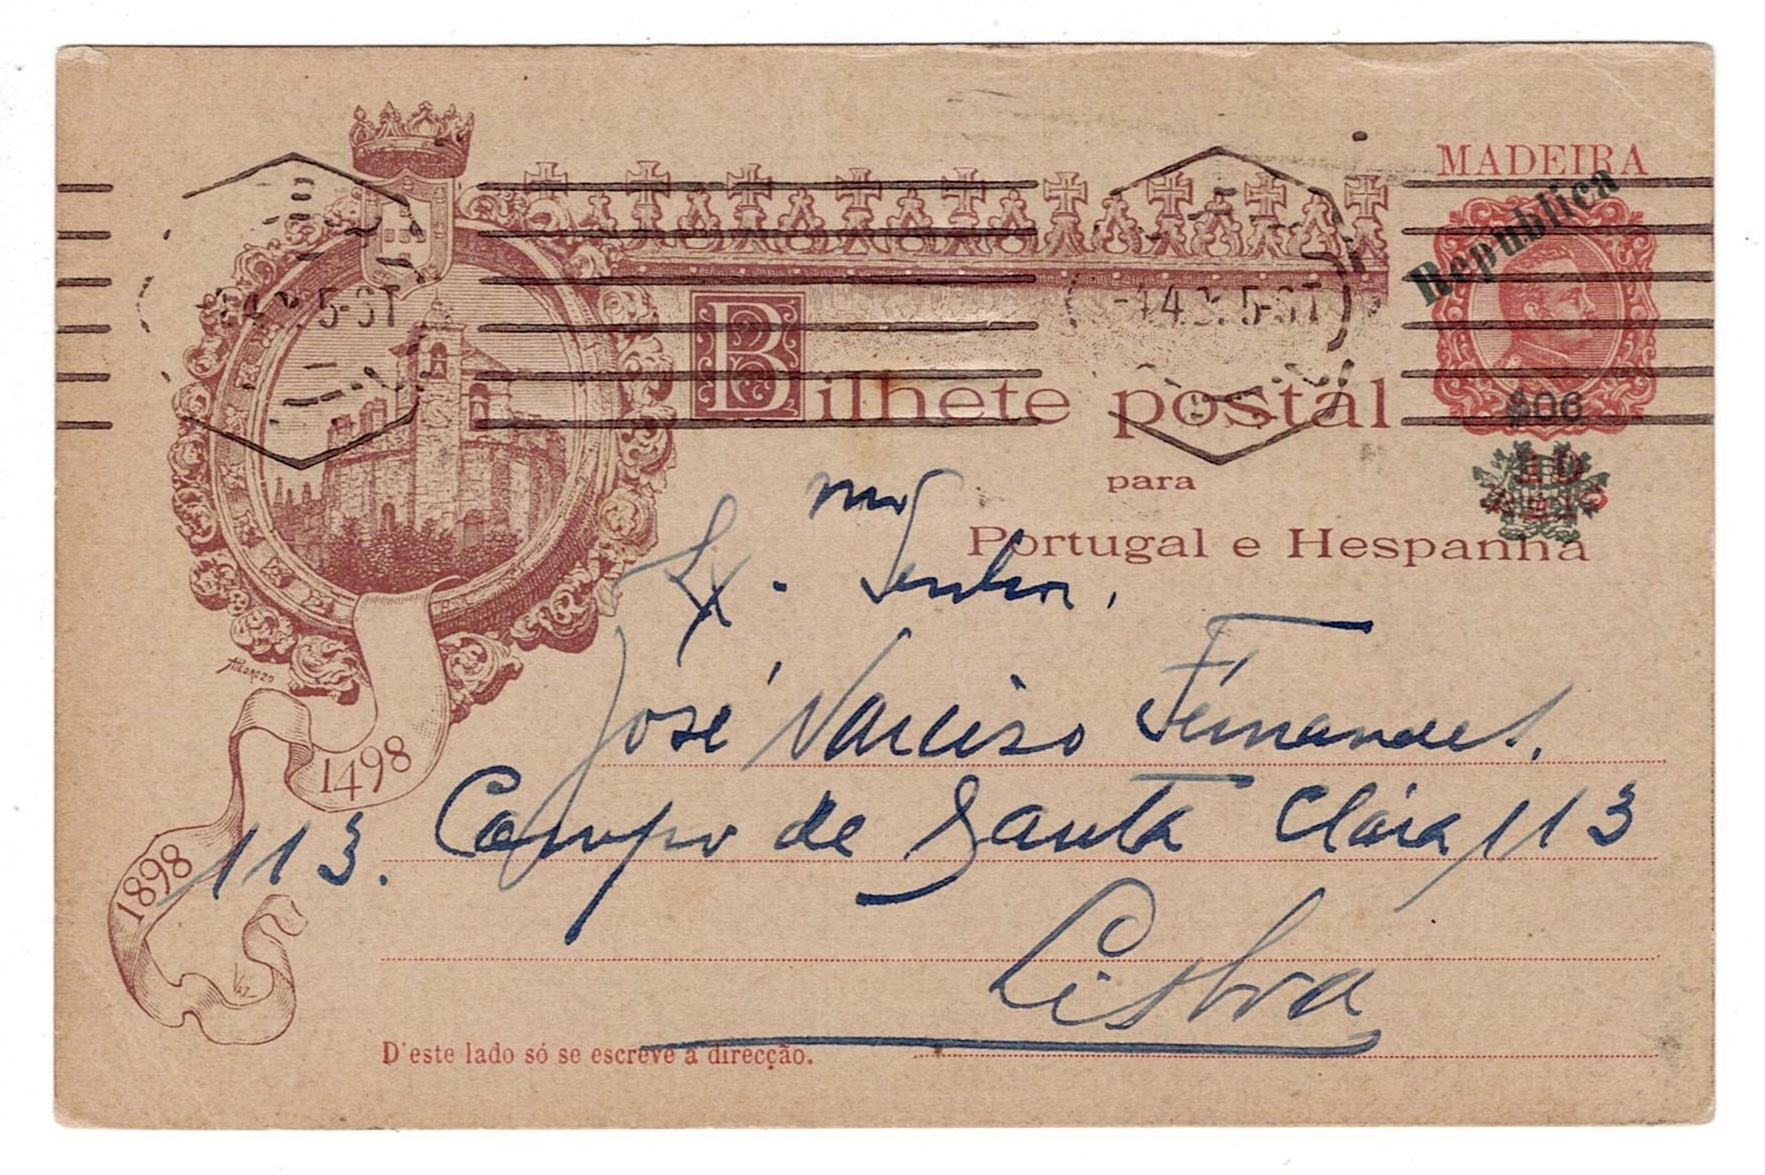 MADEIRA
Republica
Bilhete postal
$06
para
Portugal e Hespanha
Exmo. Senhor.
José Narciso Fernandes.
1498
113. Campo de Santa Clára 113
1898
Lisboa
D'este lado só se escreve a direcção.